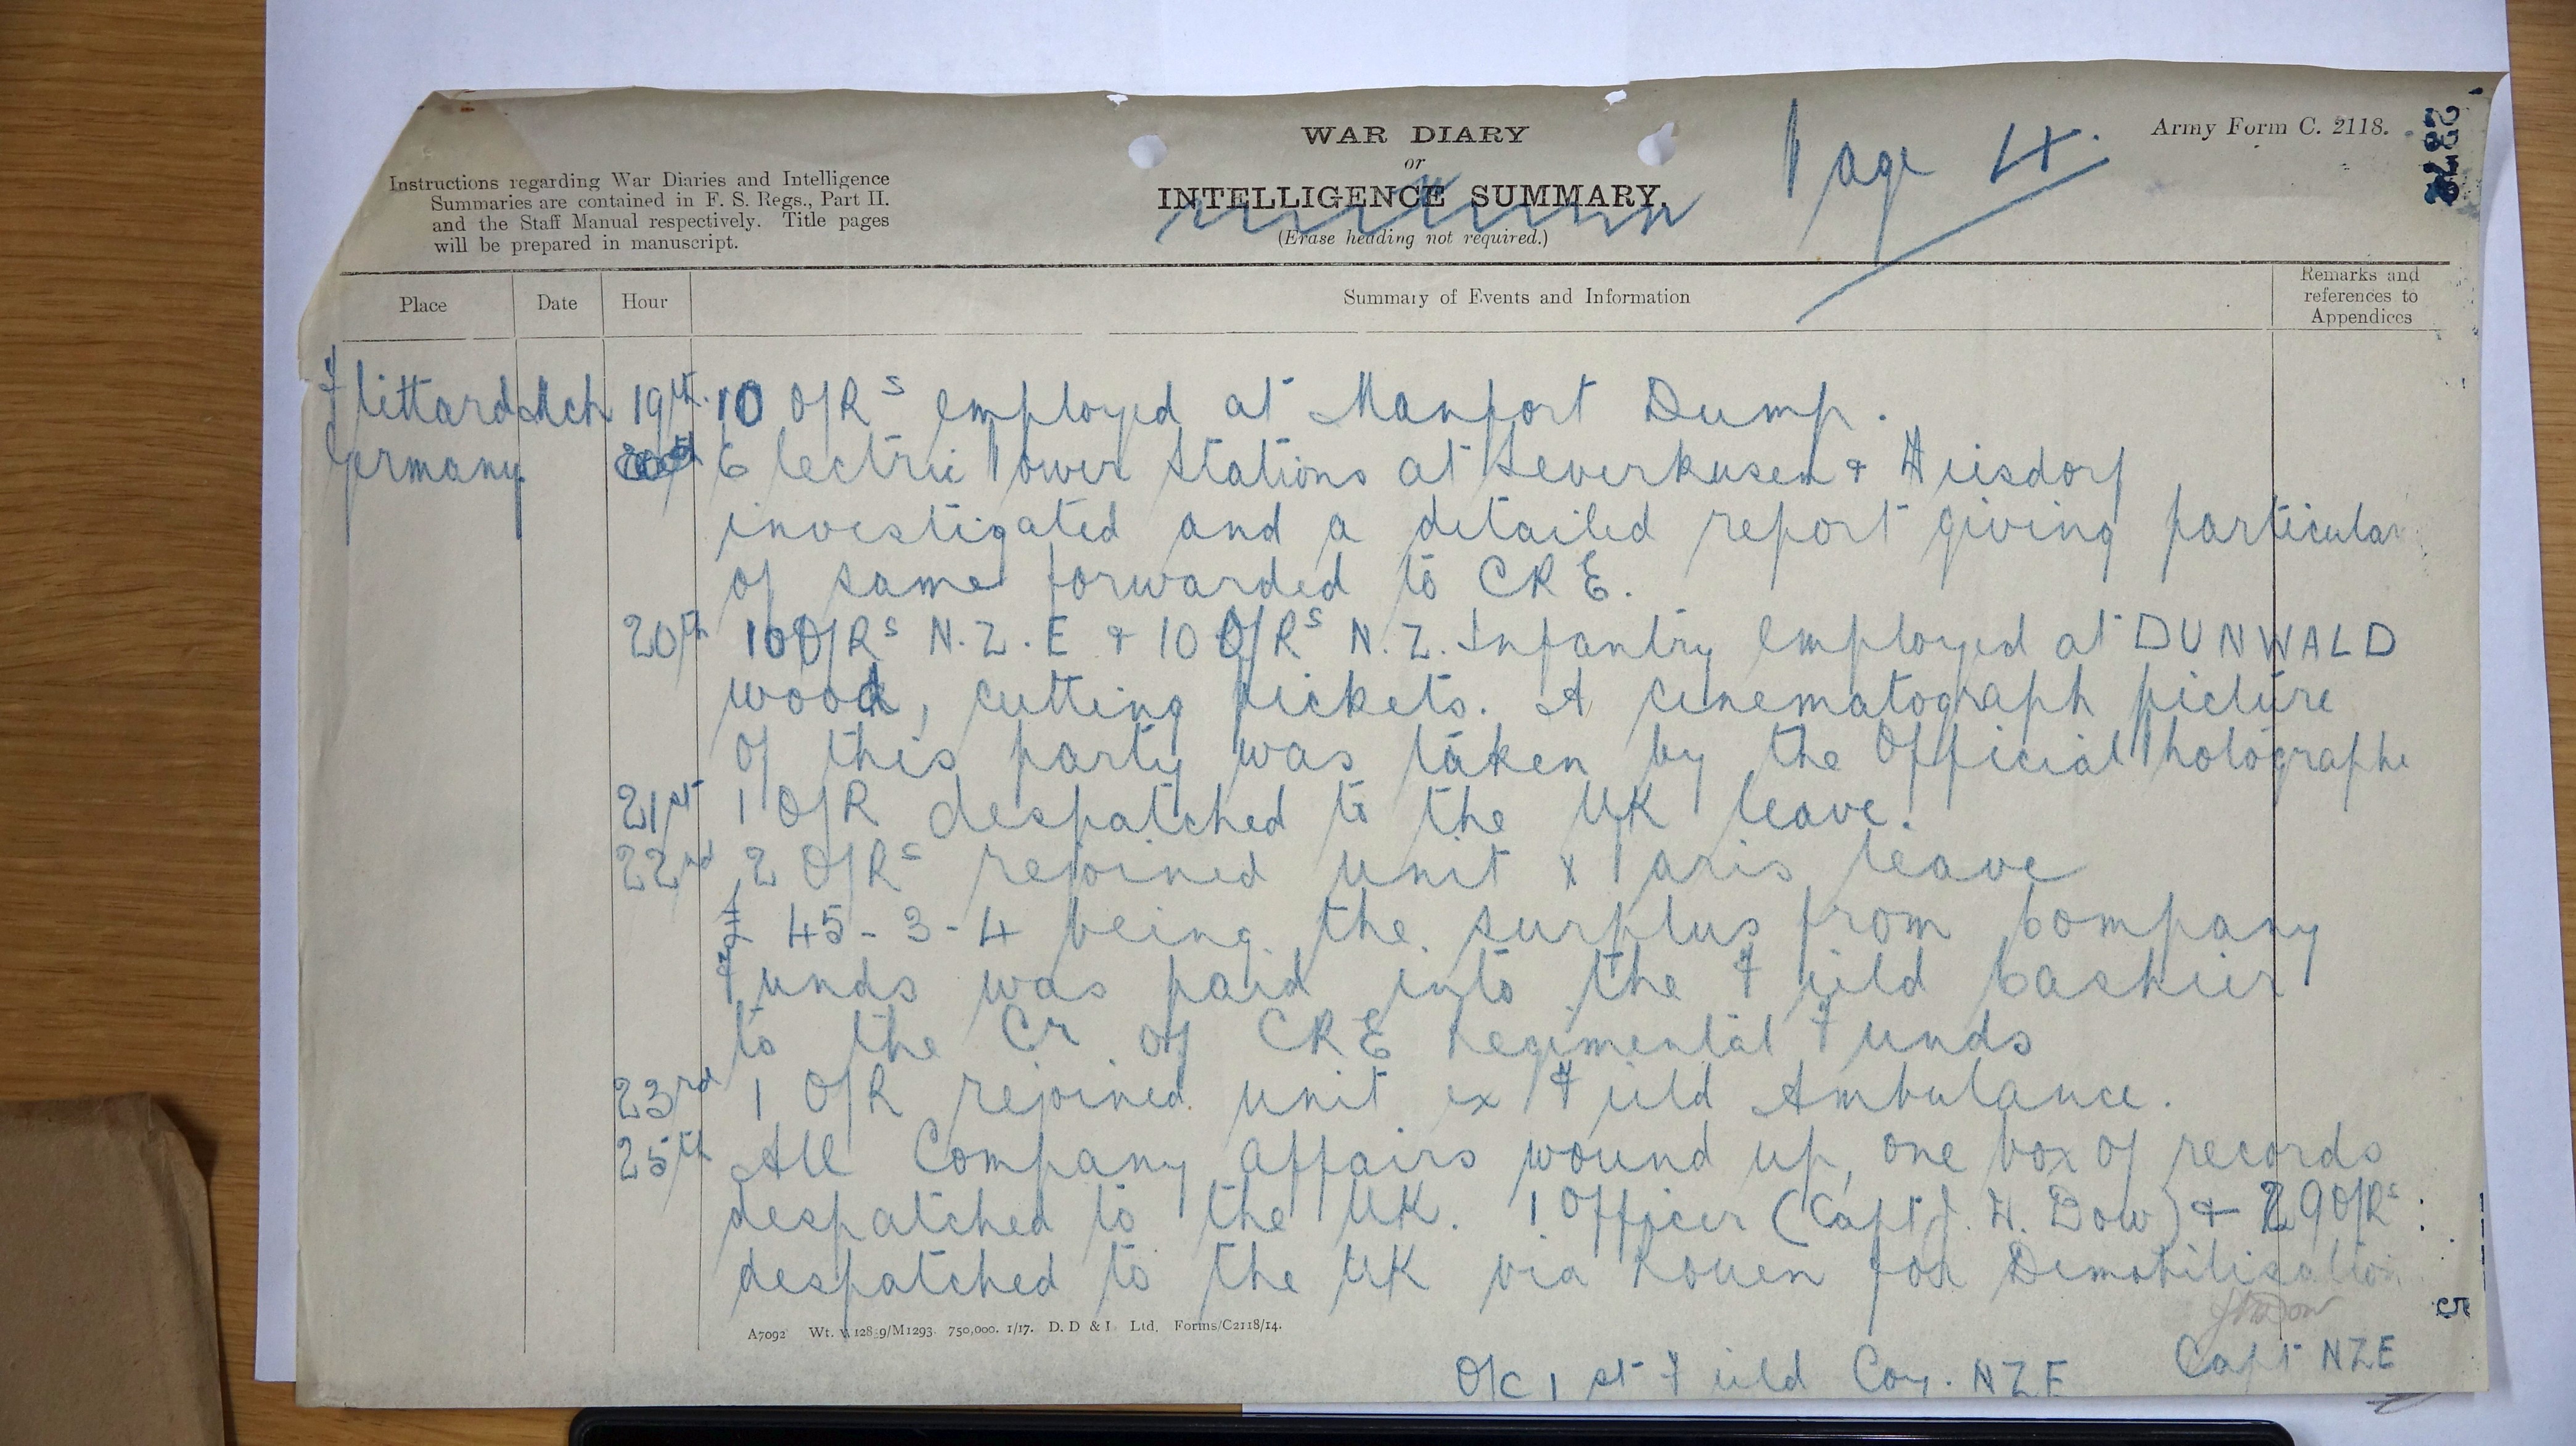 WAR DIARY
or
INTELLIGENCE SUMMARY.
(Erase heading not required.)
Page 4.
Army Form C. 2118.
Instructions regarding War Diaries and Intelligence
Summaries are contained in F. S. Regs., Part II.
and the Staff Manual respectively. Title pages
will be prepared in manuscript.
Place Date Hour Summary of Events and Information Remarks and
references to
Appendices
Flittard Mch 19th. 10 O/Rs employed at Manfort Dump.
Germany Electric Power Stations at Leverkusen & Wiesdorf
investigated and a detailed report giving particular
of same forwarded to CRE.
20th 10 O/Rs N.Z.E & 10 O/Rs N.Z. Infantry employed at DUNWALD
wood, cutting pickets. A cinematograph picture
of this party was taken by the Official Photographe
21st 1 O/R despatched to the UK leave.
22nd 2 O/Rs rejoined unit x Paris leave
£45-3-4 being the surplus from Company
Funds was paid into the Field Cashier
to the Cr of CRE Regimental Funds
23rd 1 O/R rejoined unit ex Field Ambulance.
25th All Company affairs wound up, one box of records
despatched to the UK. 1 Officer (Capt J. H. Dow) & 29 O/Rs
despatched to the UK via Rouen for Demobilisation
A7092 Wt. 750,000. 1/17. D. D & L Ltd. Forms/C2118/14.
Capt NZE
O/C 1st Field Coy. NZE